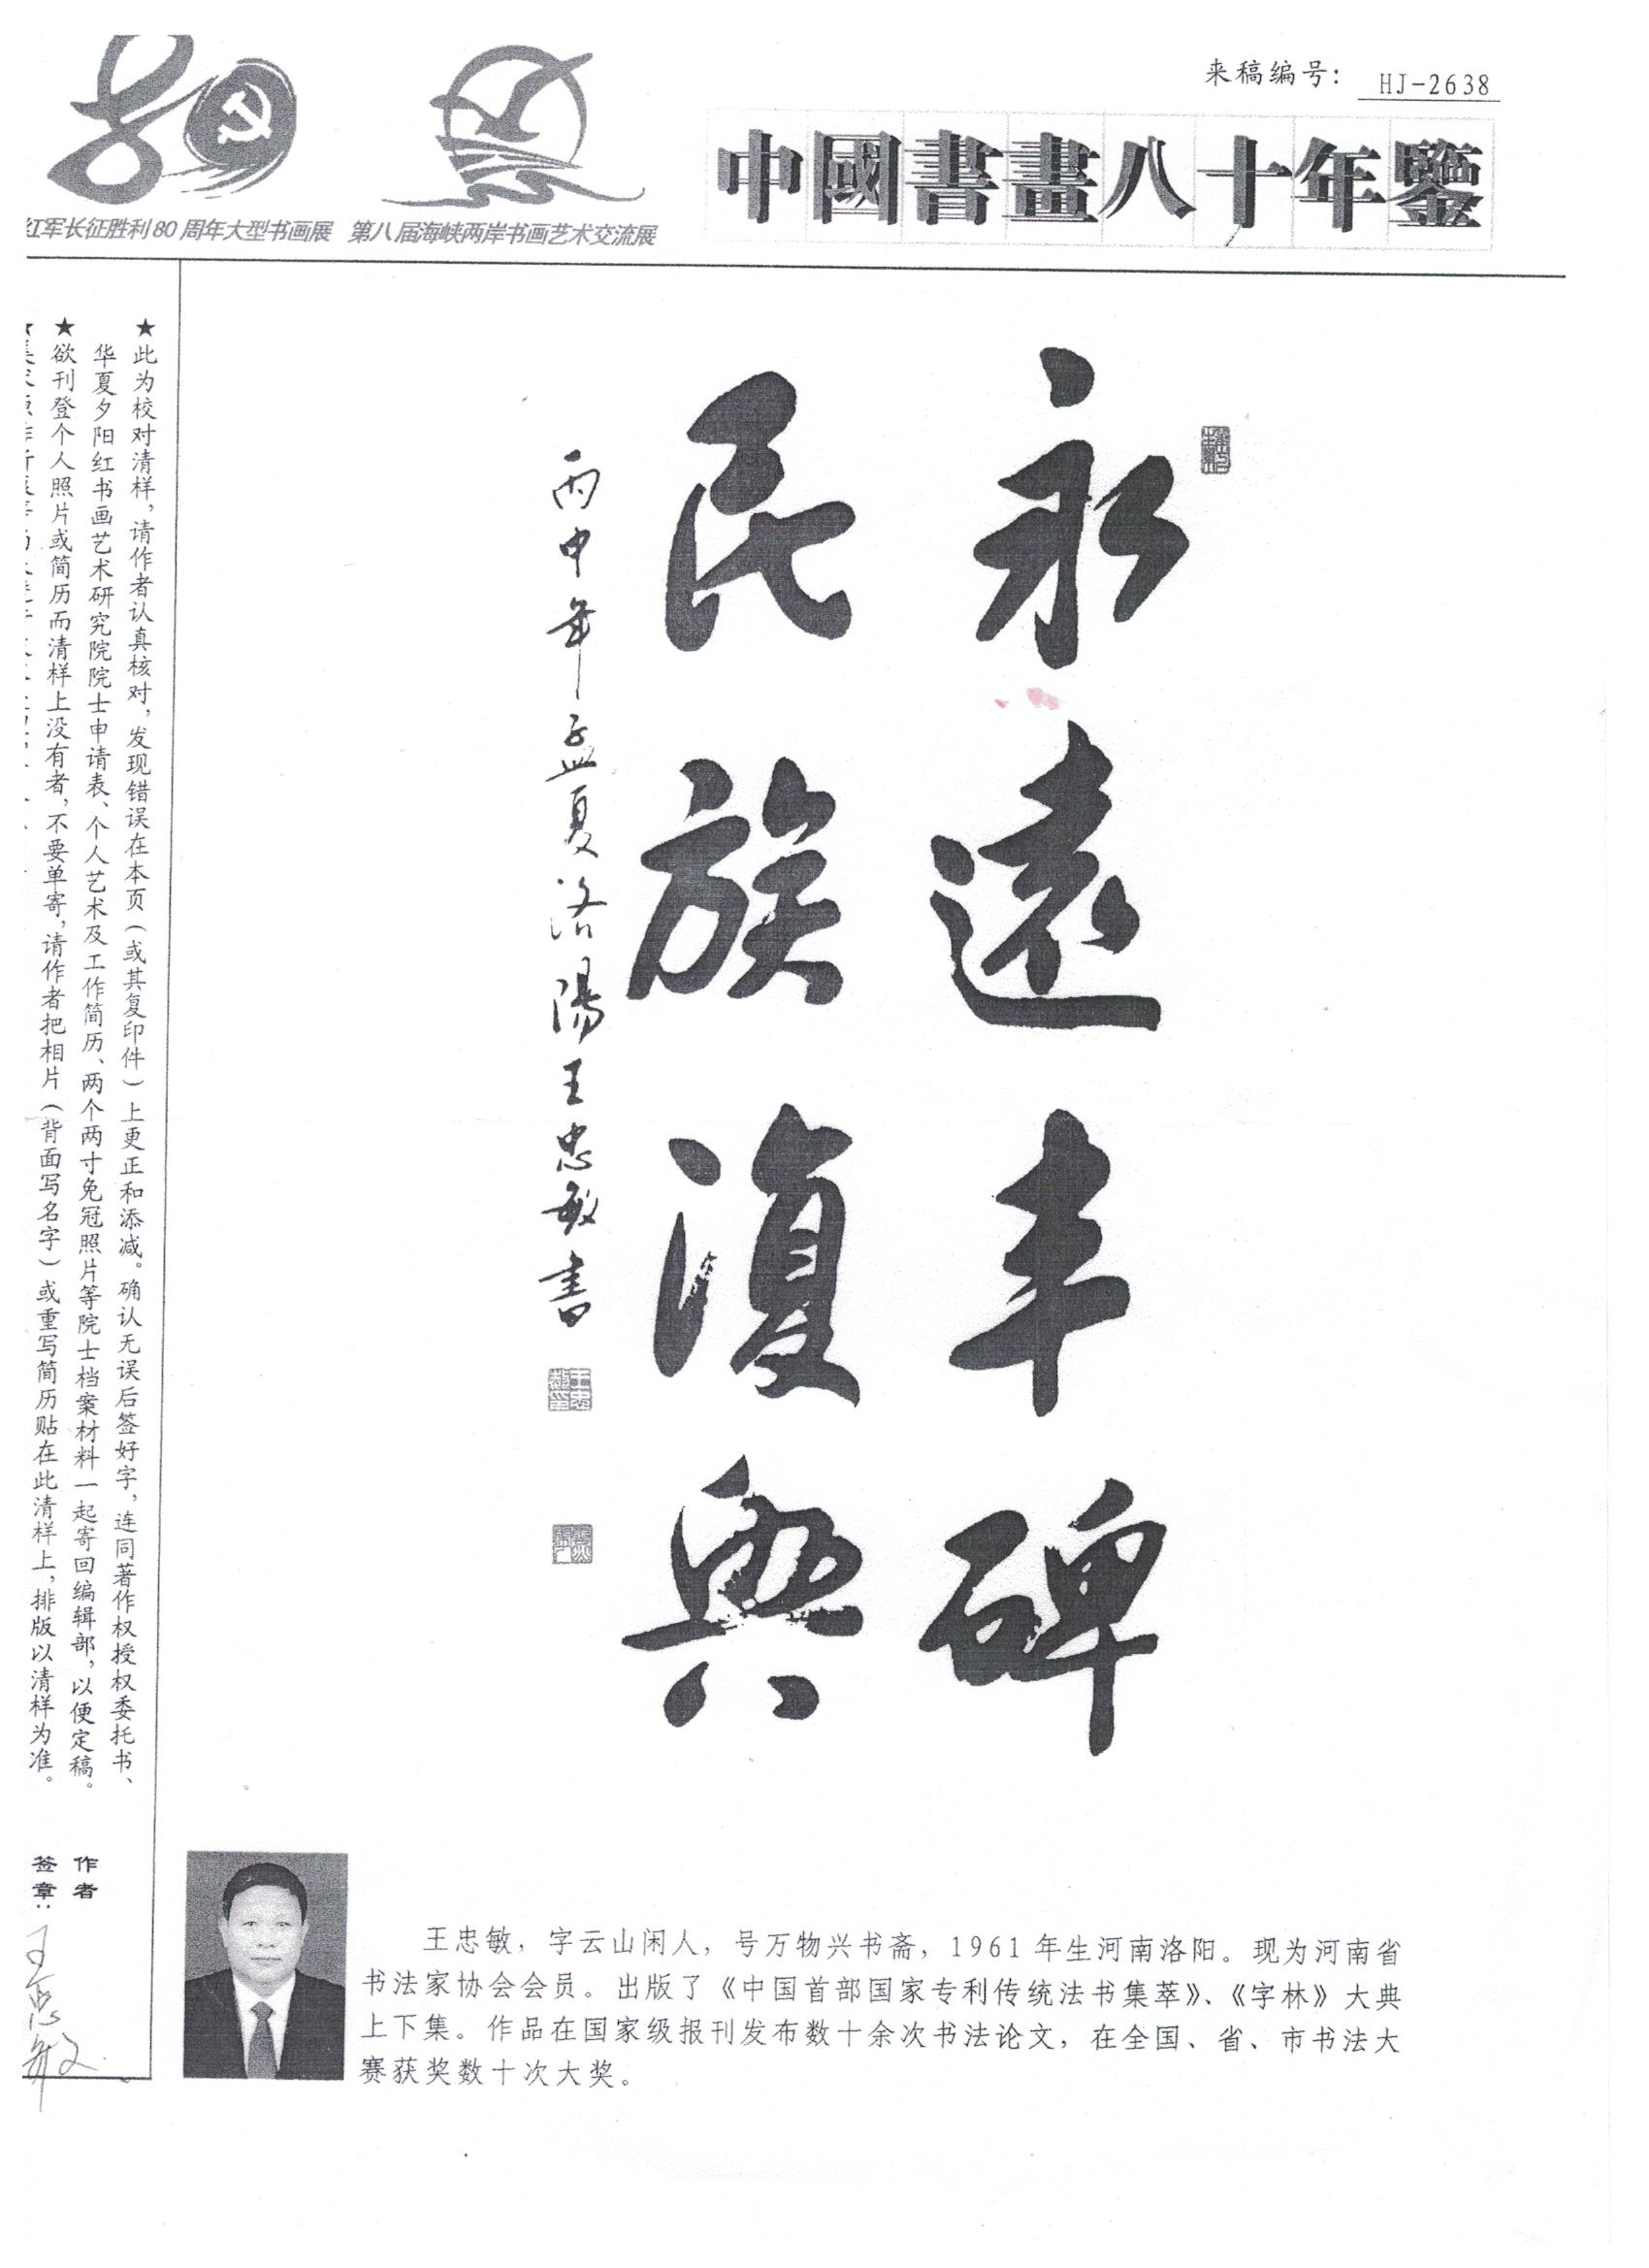 来稿编号: HJ-2638
红军长征胜利80周年大型书画展
第八届海峡两岸书画艺术交流展
中國書畫八十年鑒
永遠丰碑
民族復興
丙申年孟夏洛陽王忠敏书
★此为校对清样,请作者认真核对,发现错误在本页(或其复印件)上更正和添减。确认无误后签好字,连同著作权授权委托书、
华夏夕阳红书画艺术研究院院士申请表、个人艺术及工作简历、两个两寸免冠照片等院士档案材料一起寄回编辑部,以便定稿。
★欲刊登个人照片或简历而清样上没有者,不要单寄,请作者把相片(背面写名字)或重写简历贴在此清样上,排版以清样为准。
作者
签章:
王忠敏
王忠敏,字云山闲人,号万物兴书斋,1961年生河南洛阳。现为河南省
书法家协会会员。出版了《中国首部国家专利传统法书集萃》、《字林》大典
上下集。作品在国家级报刊发布数十余次书法论文,在全国、省、市书法大
赛获奖数十次大奖。